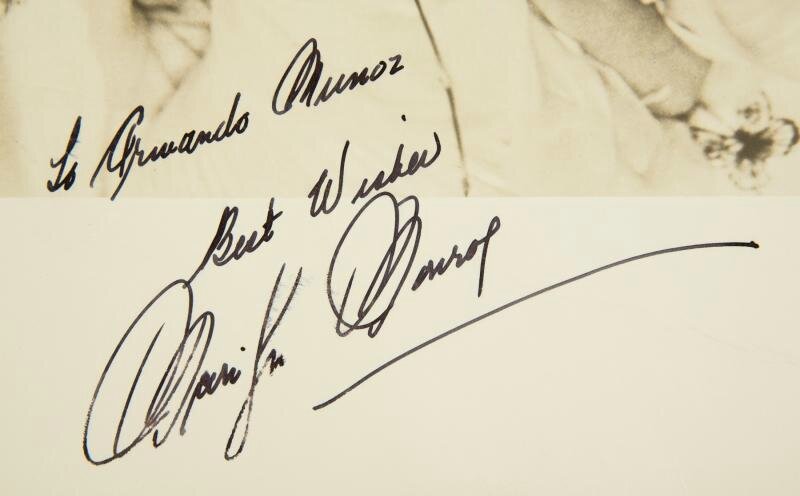 To Armando Munoz
Best Wishes
Marilyn Monroe